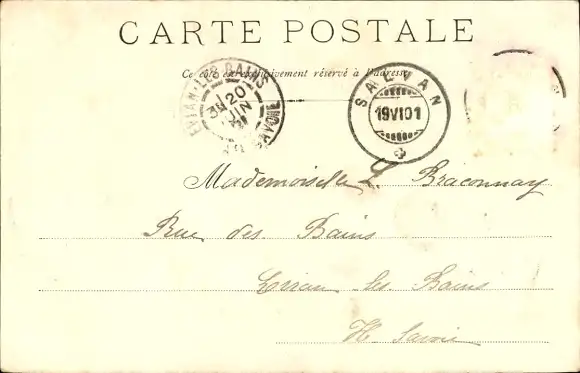 CARTE POSTALE
Ce côté est exclusivement réservé à l'adresse
EVIAN-LES-BAINS
3E 20
JUIN
SAVOIE
SALVAN
19 VI 01
Mademoiselle L. Braconnay
Rue des Bains
Evian les Bains
Hte Savoie